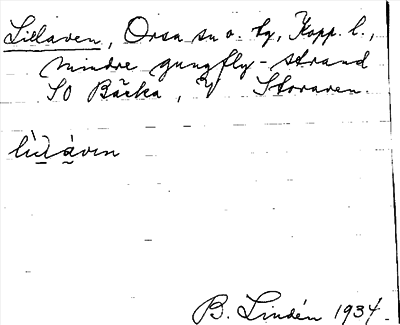 Lillåven, Orsa sn o. tg, Kopp. l.,
mindre gungfly-strand
SO Bäcka, V Storåven.
lìlåvin
B. Lindén 1934.